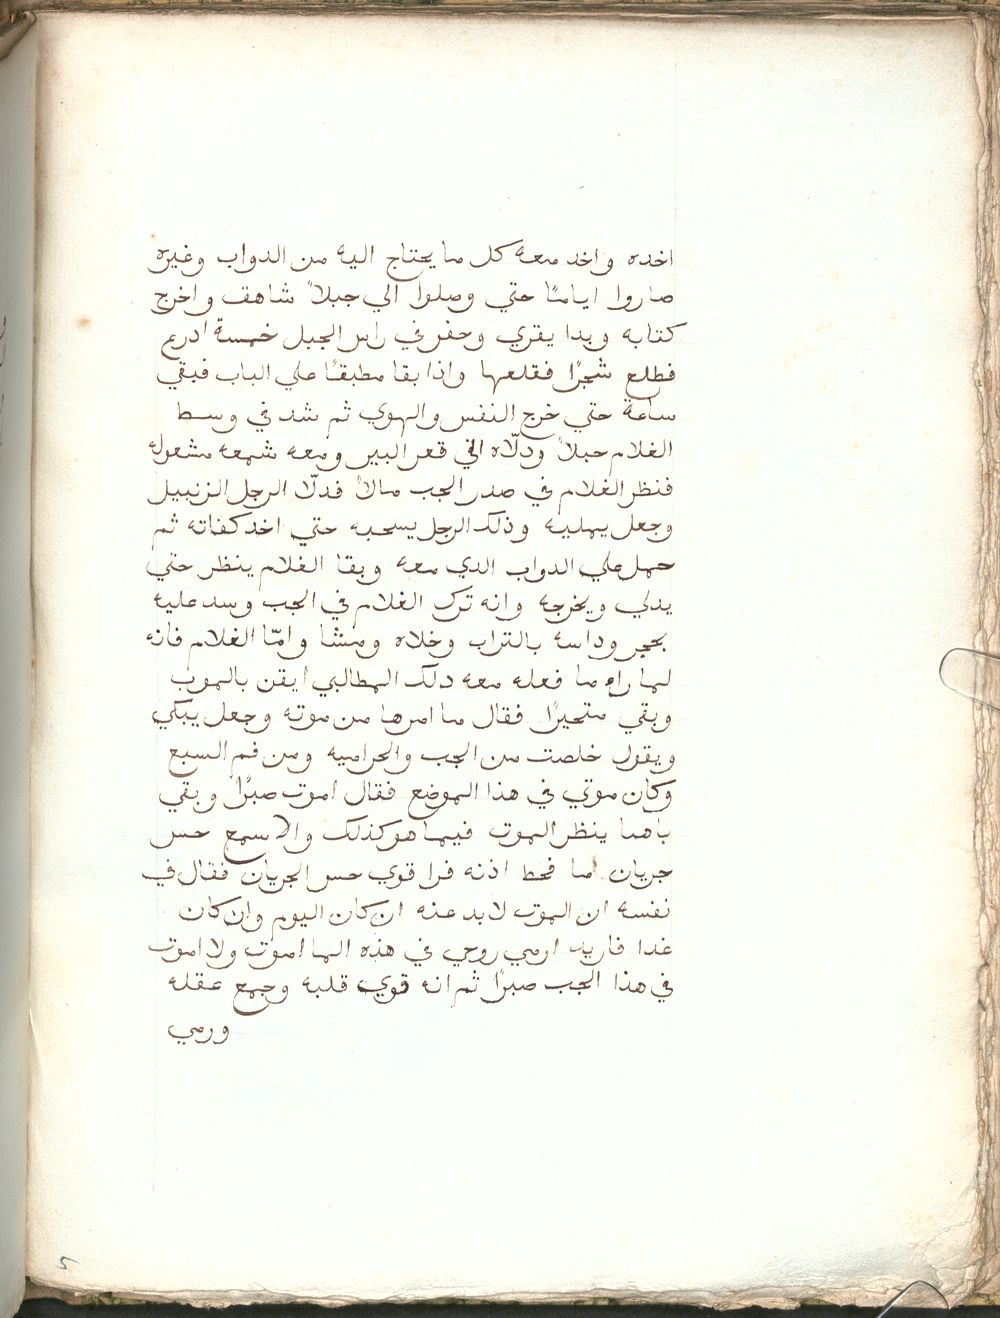 اخده واخد معه كل ما يحتاج اليه من الدواب وغيره
صاروا اياما حتي وصلوا الي جبلاً شاهق واخرج
كتابه وبدا يقري وحفر في راس الجبل خمسة ادرع
فطلع شجرًا فقلعها واذا بقا مطبقًا علي الباب فبقي
ساعة حتي خرج النفس والهوي ثم شد في وسط
الغلام حبلاً ودلّاه الي قعر البير ومعه شمعه مشعوله
فنظر الغلام في صدر الجب مالاً فدلّا الرجل الزنبيل
وجعل يمليه وذلك الرجل يسحبه حتي اخد كفاته ثم
حمل علي الدواب الدي معه وبقا الغلام ينظر حتي
يدلي ويخرجه وانه ترك الغلام في الجب وسد عليه
بحجر وداسه بالتراب وخلاه ومشا وامّا الغلام فانه
لما راه ما فعله معه دلك المطالبي ايقن بالموت
وبقي متحيرًا فقال ما امرها من موته وجعل يبكي
ويقول خلصت من الجب والحراميه ومن فم السبع
وكان موتي في هذا الموضع فقال اموت صبرًا وبقي
باهما ينظر الموت فيما هو كذلك والا سمع حس
جريان ما فحط اذنه فرا قوي حس الجريان فقال في
نفسه ان الموت لا بد عنه ان كان اليوم وان كان
غدا فاريد ارمي روحي في هذه الما اموت ولا اموت
في هذا الجب صبرًا ثم انه قوي قلبه وجمع عقله
ورمي
5